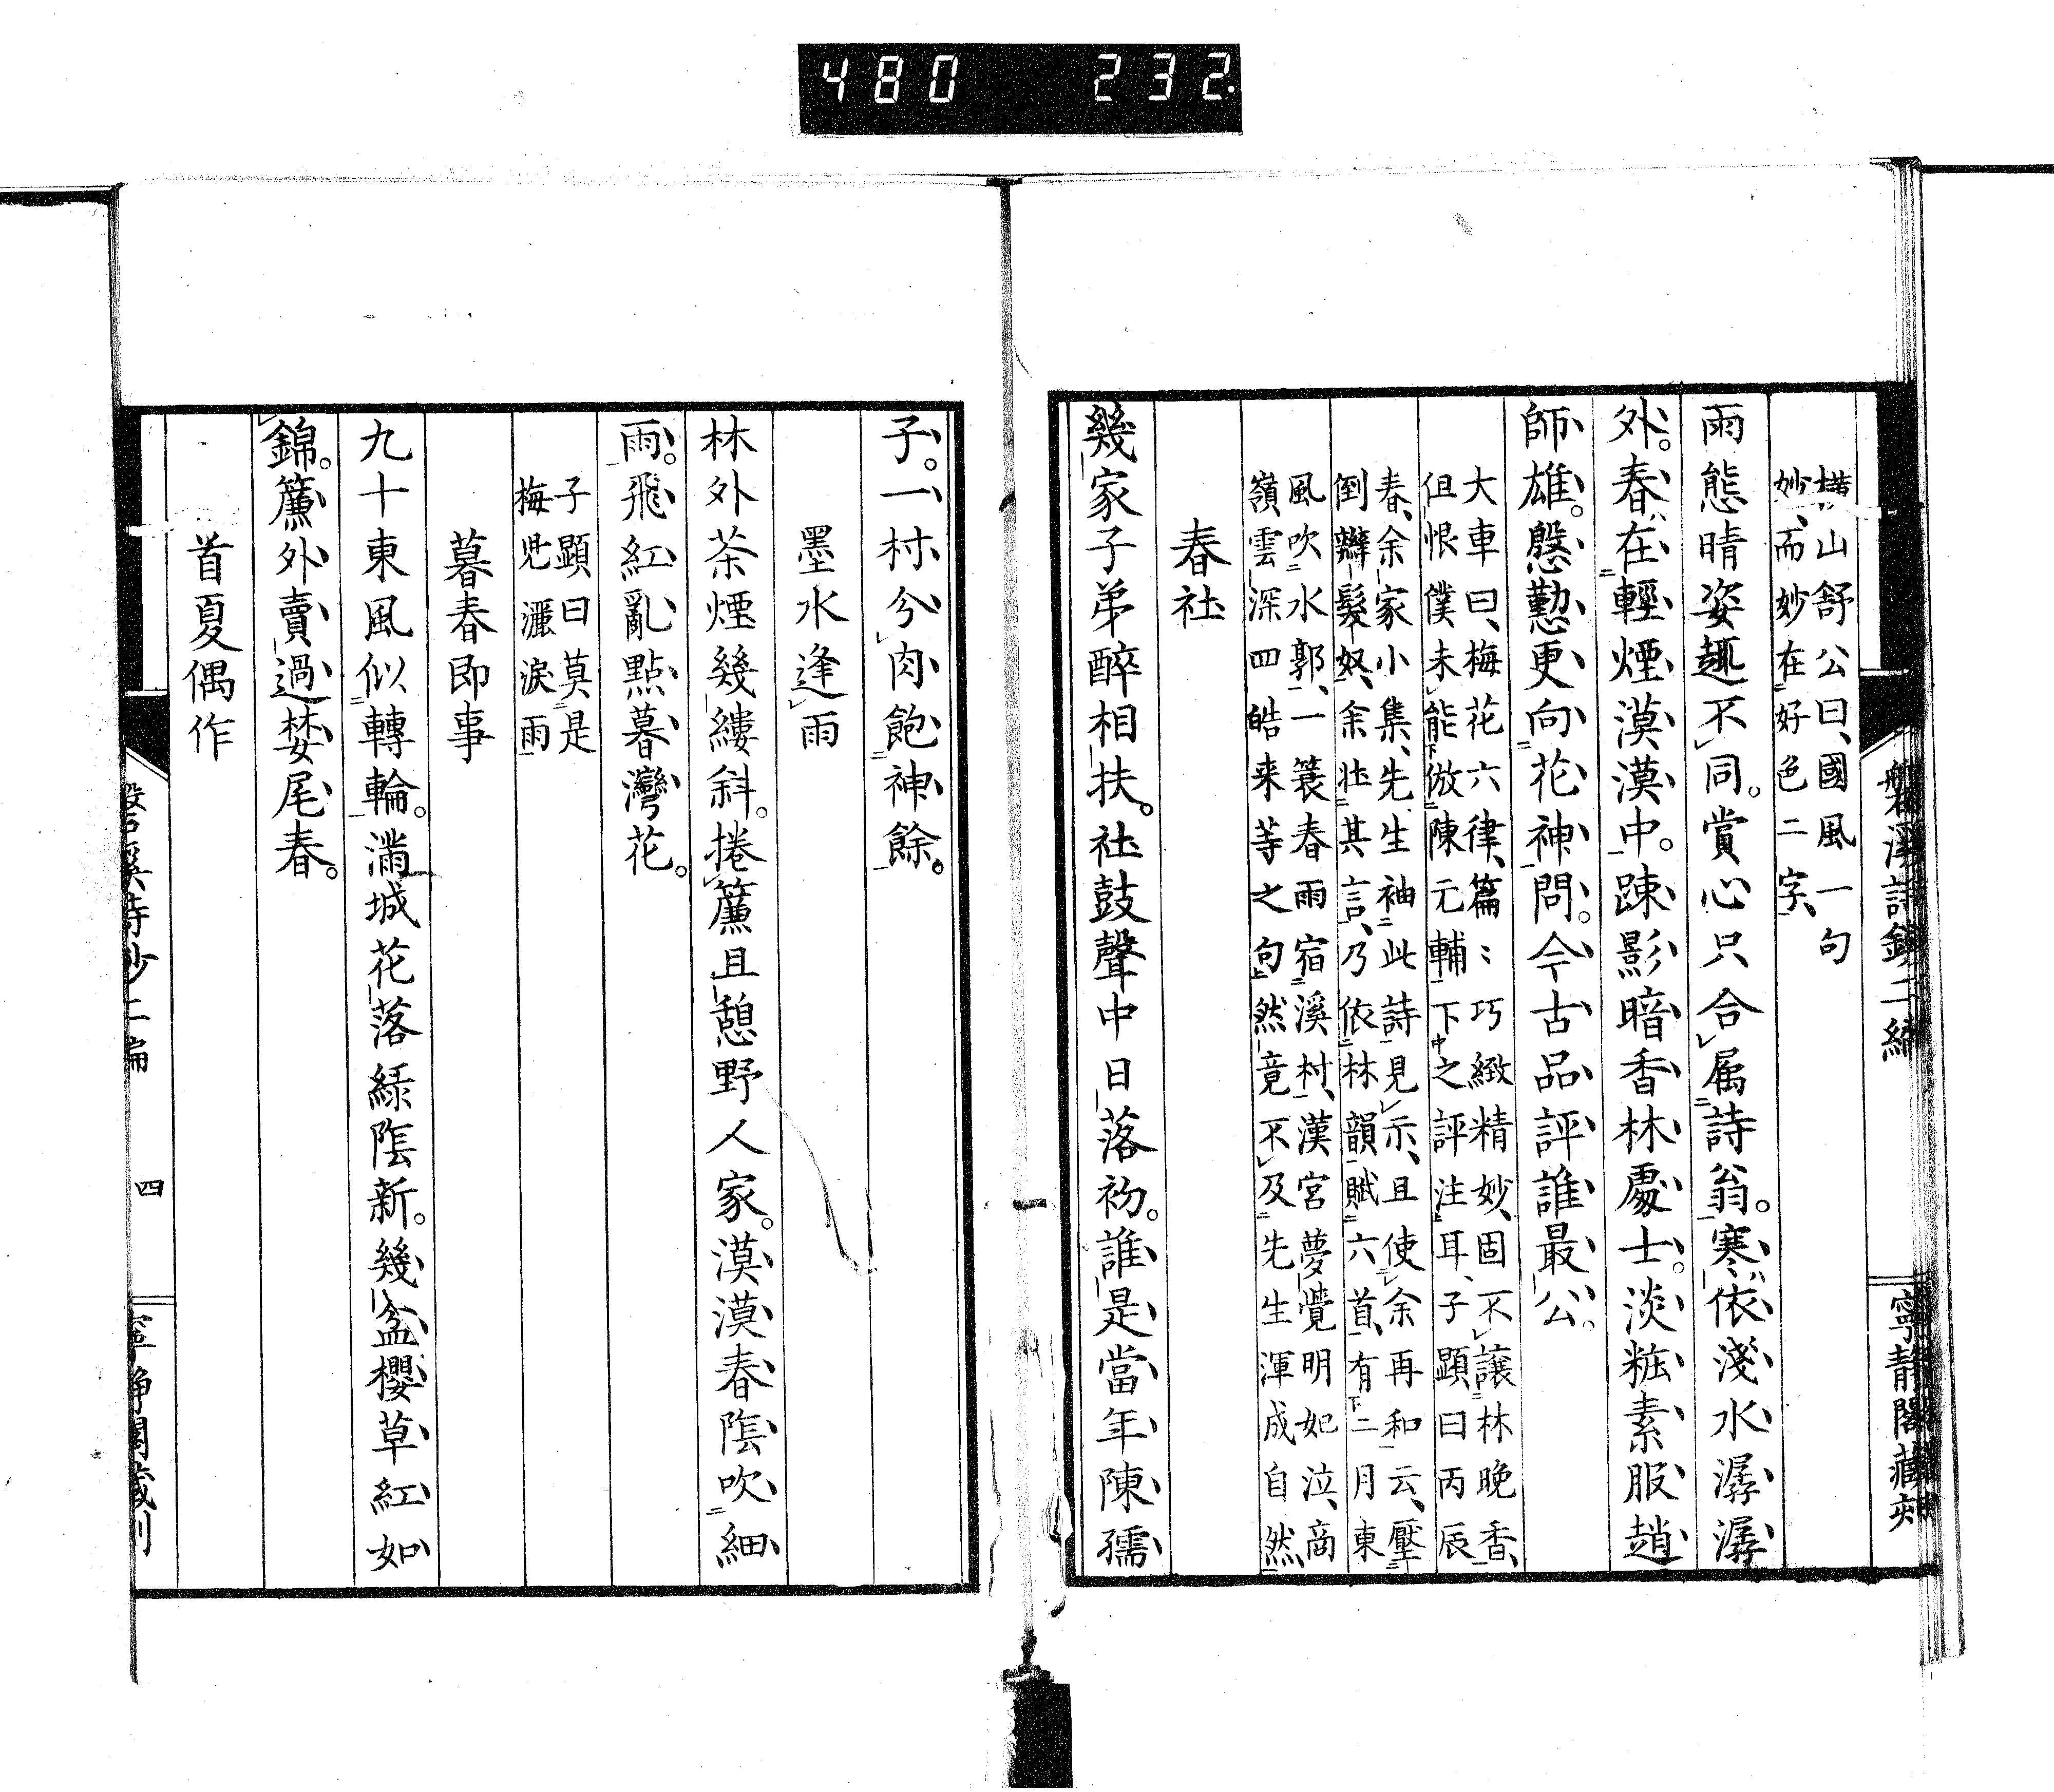 480 232
磐溪詩鈔二編
寧靜閣藏
橫山舒公曰、國風一句
妙、而妙在好色二字、
雨態晴姿趣不同。賞心只合属詩翁。寒依淺水潺潺
外。春在輕煙漠漠中。踈影暗香林處士。淡粧素服趙
師雄。慇懃更向花神問。今古品評誰最公。
大車曰、梅花六律、篇〻巧緻精妙、固不讓林晚香、
但恨僕未能倣陳元輔下之評注耳、子顯曰丙辰
春、余家小集、先生袖此詩見示、且使余再和云、壓
倒辮髮奴、余壮其言、乃依林韻賦六首、有二月東
風吹水郭、一簑春雨宿溪村、漢宮夢覺明妃泣、商
嶺雲深四皓来等之句、然竟不及先生渾成自然、
春社
幾家子弟醉相扶。社鼓聲中日落初。誰是當年陳孺
子。一村兮肉飽神餘。
墨水逢雨
林外茶煙幾縷斜。捲簾且憩野人家。漠漠春陰吹細
雨。飛紅亂點暮灣花。
子顯曰莫是
梅児灑淚雨
暮春即事
九十東風似轉輪。滿城花落緑陰新。幾盆櫻草紅如
錦。簾外賣過婪尾春。
首夏偶作
磐溪詩鈔二編
四
寧靜閣藏